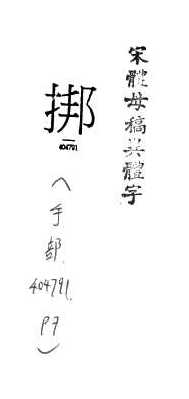 宋體母稿異體字
挷
404791
(手部 404791 P7)